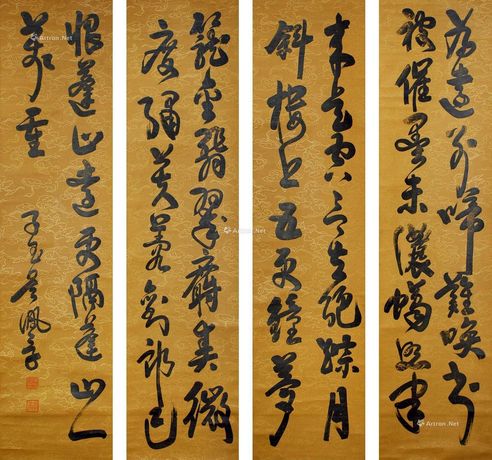 為遠別啼難喚書
被催墨未濃蠟照半
來是空言去絕踪月
斜樓上五更鐘夢
籠金翡翠麝熏微
度繡芙蓉劉郎已
恨蓬山遠更隔蓬山一
萬重
子玉吳佩孚
Artron.Net
Artron.Net
Artron.Net
Artron.Net
Artron.Net